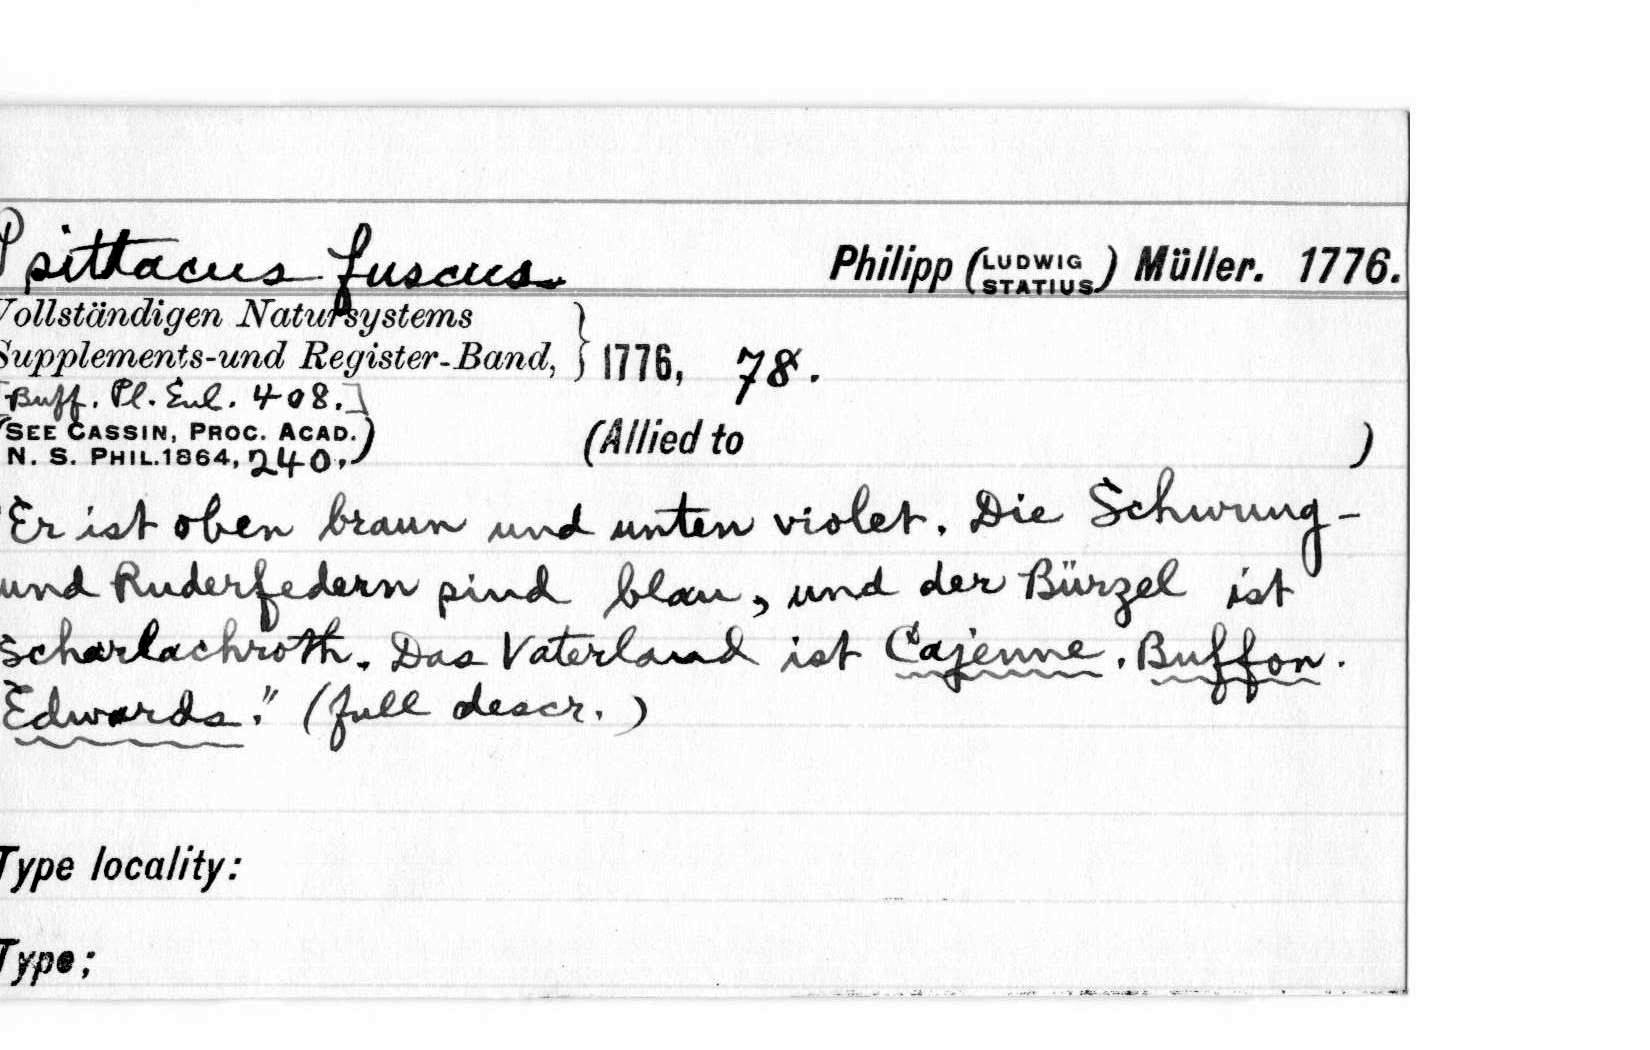 Psittacus fuscus. Philipp (LUDWIG STATIUS) Müller. 1776.
Vollständigen Natursystems
Supplements-und Register-Band, } 1776, 78.
[Buff. Pl. Enl. 408.]
(SEE CASSIN, PROC. ACAD.
N. S. PHIL. 1864, 240.) (Allied to )
"Er ist oben braun und unten violet. Die Schwung-
und Ruderfedern sind blau, und der Bürzel ist
scharlachroth. Das Vaterland ist Cajenne. Buffon.
Edwards." (full descr.)
Type locality:
Type;